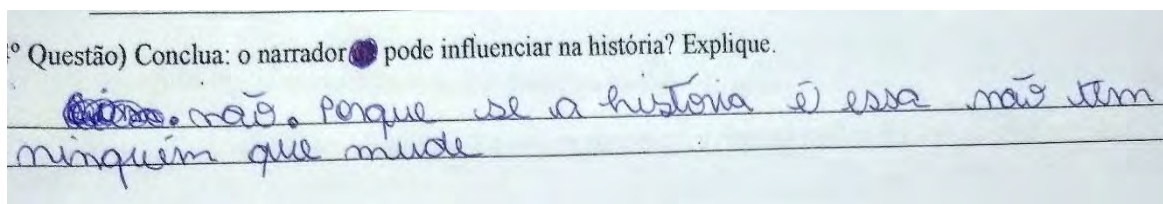 º Questão) Conclua: o narrador pode influenciar na história? Explique.
não. Porque se a história é essa não tem
ninguém que mude